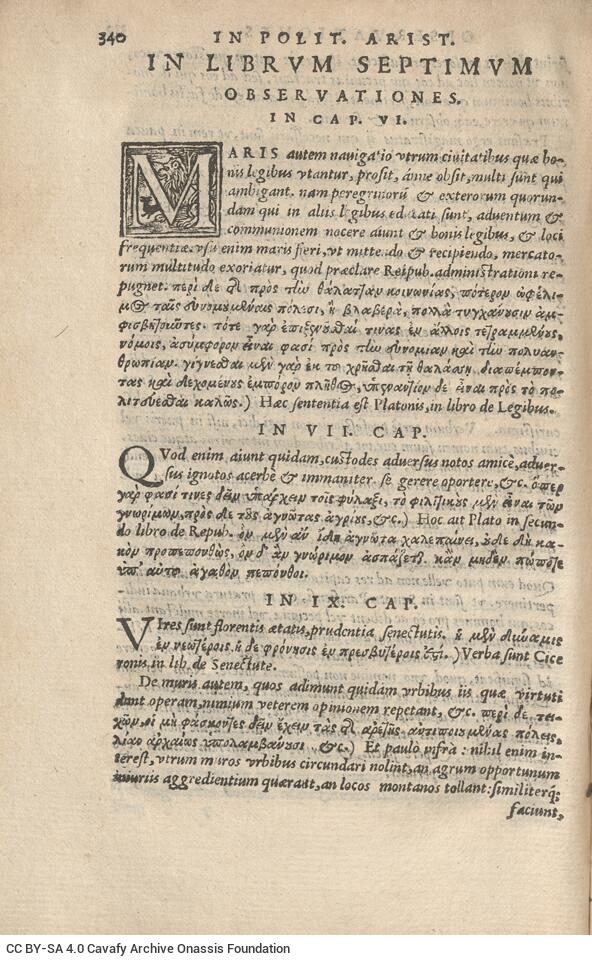 340 IN POLIT. ARIST.
IN LIBRVM SEPTIMVM
OBSERVATIONES.
IN CAP. VI.
MARIS autem nauigatio vtrum ciuitatibus quæ bo-
nis legibus vtantur, prosit, anne obsit, multi sunt qui
ambigant. nam peregrinorū & exterorum quorun-
dam qui in aliis legibus educati sunt, aduentum &
communionem nocere aiunt & bonis legibus, & loci
frequentiæ. vsu enim maris fieri, vt mittendo & recipiendo, mercato-
rum multitudo exoriatur, quod præclare Reipub. administrationi re-
pugnet. περὶ δὲ τῆς πρὸς τὴν θάλατταν κοινωνίας, πότερον ὠφέλι-
μος ταῖς εὐνομουμέναις πόλεσιν, ἢ βλαβερὰ, πολλὰ τυγχάνουσιν ἀμ-
φισβητοῦντες. τότε γὰρ ἐπιξενοῦσθαί τινας ἐν ἄλλοις τεθραμμένους
νόμοις, ἀσύμφορον εἶναί φασι πρὸς τὴν εὐνομίαν καὶ τὴν πολυαν-
θρωπίαν. γίγνεσθαι μὲν γὰρ ἐκ τοῦ χρῆσθαι τῇ θαλάσσῃ διαπέμπον-
τας καὶ δεχομένους ἐμπόρων πλῆθος, ὑπεναντίον δὲ εἶναι πρὸς τὸ πο-
λιτεύεσθαι καλῶς.) Hæc sententia est Platonis, in libro de Legibus.
IN VII. CAP.
QVod enim aiunt quidam, custodes aduersus notos amicè, aduer-
sus ignotos acerbè & immaniter se gerere oportere, &c. ὅπερ
γάρ φασί τινες δεῖν ὑπάρχειν τοῖς φύλαξι, τὸ φιλητικοὺς μὲν εἶναι τῶν
γνωρίμων, πρὸς δὲ τοὺς ἀγνῶτας ἀγρίους, &c.) Hoc ait Plato in secun-
do libro de Repub. ὃν μὲν ἂν ἴδῃ ἀγνῶτα χαλεπαίνει, οὐδὲ ἓν κα-
κὸν προπεπονθὼς, ὃν δ' ἂν γνώριμον ἀσπάζεται κἂν μηδὲν πώποτε
ὑπ' αὐτοῦ ἀγαθὸν πεπόνθοι.
IN IX. CAP.
VIres sunt florentis ætatis, prudentia senectutis. ἡ μὲν δύναμις
ἐν νεωτέροις, ἡ δὲ φρόνησις ἐν πρεσβυτέροις ἐστί.) Verba sunt Cice
ronis in lib. de Senectute.
De muris autem, quos adimunt quidam vrbibus iis quæ virtuti
dant operam, nimium veterem opinionem repetant, &c. περὶ δὲ τει-
χῶν, οἱ μὴ φάσκοντες δεῖν ἔχειν τὰς τῆς ἀρετῆς ἀντιποιουμένας πόλεις,
λίαν ἀρχαίως ὑπολαμβάνουσι &c.) Et paulò infrà: nihil enim in-
terest, vtrum muros vrbibus circundari nolint, an agrum opportunum
iniuriis aggredientium quærant, an locos montanos tollant: similiterq;
faciunt,
CC BY-SA 4.0 Cavafy Archive Onassis Foundation